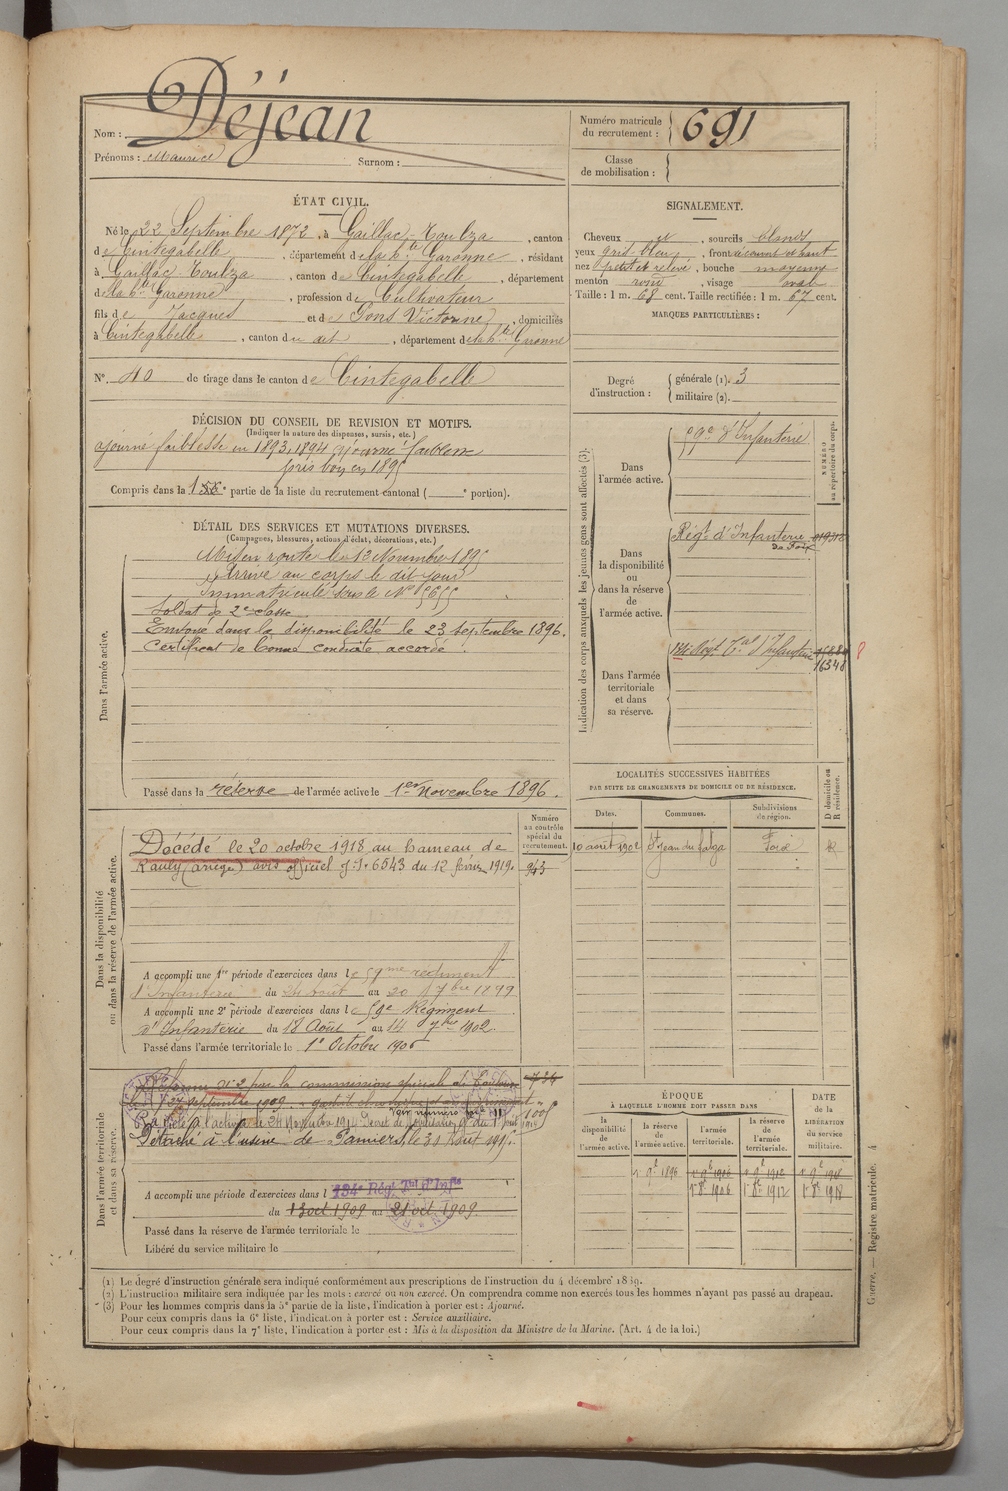 Nom : Déjean
Prénoms : Maurice Surnom :
Numéro matricule du recrutement : 691
Classe de mobilisation :
ÉTAT CIVIL.
Né le 22 Septembre 1872, à Gaillac-Toulza, canton
de Cintegabelle, département de la hte Garonne, résidant
à Gaillac Toulza, canton de Cintegabelle, département
de la hte Garonne, profession de Cultivateur
fils de Jacques et de Pons Victorine, domiciliés
à Cintegabelle, canton du dit, département de la hte Garonne
N° 40 de tirage dans le canton de Cintegabelle
SIGNALEMENT.
Cheveux et, sourcils blonds
yeux gris-bleu, front découvert et haut
nez petit et relevé, bouche moyenne
menton rond, visage ovale
Taille : 1 m. 68 cent. Taille rectifiée : 1 m. 67 cent.
MARQUES PARTICULIÈRES :
Degré d'instruction : générale (1). 3
militaire (2).
DÉCISION DU CONSEIL DE REVISION ET MOTIFS.
(Indiquer la nature des dispenses, sursis, etc.)
ajourné faiblesse en 1893, 1894 ajourné faiblesse
pris bon en 1895
Compris dans la 1 partie de la liste du recrutement cantonal ( e portion).
DÉTAIL DES SERVICES ET MUTATIONS DIVERSES.
(Campagnes, blessures, actions d'éclat, décorations, etc.)
Dans l'armée active.
Mis en route le 12 Novembre 1895
Arrivé au corps le dit jour
Immatriculé sous le N° 5655
Soldat de 2e classe.
Envoyé dans la disponibilité le 23 septembre 1896.
Certificat de bonne conduite accordé.
Passé dans la réserve de l'armée active le 1er Novembre 1896.
Indication des corps auxquels les jeunes gens sont affectés (3).
NUMÉRO au répertoire du corps.
Dans l'armée active.
59e d'Infanterie
Dans la disponibilité ou dans la réserve de l'armée active.
Régt d'Infanterie
de Foix
Dans l'armée territoriale et dans sa réserve.
134 Régt Tal d'Infanterie
16348
LOCALITÉS SUCCESSIVES HABITÉES
PAR SUITE DE CHANGEMENTS DE DOMICILE OU DE RÉSIDENCE.
D domicile ou R résidence.
Dates. Communes. Subdivisions de région.
10 août 1902 St Jean du falga Foix R
Dans la disponibilité ou dans la réserve de l'armée active.
Numéro au contrôle spécial du recrutement.
Décédé le 20 octobre 1918 au hameau de
(ariège) avis officiel 6543 du 12 février 1919.
943
A accompli une 1re période d'exercices dans le 59me régiment
d'Infanterie du 24 Août au 20 7bre 1899
A accompli une 2e période d'exercices dans le 59e Régiment
d'Infanterie du 18 Août au 14 7bre 1902.
Passé dans l'armée territoriale le 1er Octobre 1906
Dans l'armée territoriale et dans sa réserve.
Réformé n° 2 par la commission spéciale de Toulouse
le 27 septembre 1909.
Rappelé à l'activité le 24 Novembre 1914
Détaché à l'usine de Pamiers le 31 Août 1915.
A accompli une période d'exercices dans l 134e Régt Tal d'Infie
du 13 oct. 1909 au 21 oct. 1909.
Passé dans la réserve de l'armée territoriale le
Libéré du service militaire le
ÉPOQUE
À LAQUELLE L'HOMME DOIT PASSER DANS
DATE de la LIBÉRATION du service militaire.
la disponibilité de l'armée active. la réserve de l'armée active. l'armée territoriale. la réserve de l'armée territoriale.
(1) Le degré d'instruction générale sera indiqué conformément aux prescriptions de l'instruction du 4 décembre 1889.
(2) L'instruction militaire sera indiquée par les mots : exercé ou non exercé. On comprendra comme non exercés tous les hommes n'ayant pas passé au drapeau.
(3) Pour les hommes compris dans la 5e partie de la liste, l'indication à porter est : Ajourné.
Pour ceux compris dans la 6e liste, l'indication à porter est : Service auxiliaire.
Pour ceux compris dans la 7e liste, l'indication à porter est : Mis à la disposition du Ministre de la Marine. (Art. 4 de la loi.)
Guerre. — Registre matricule. 4